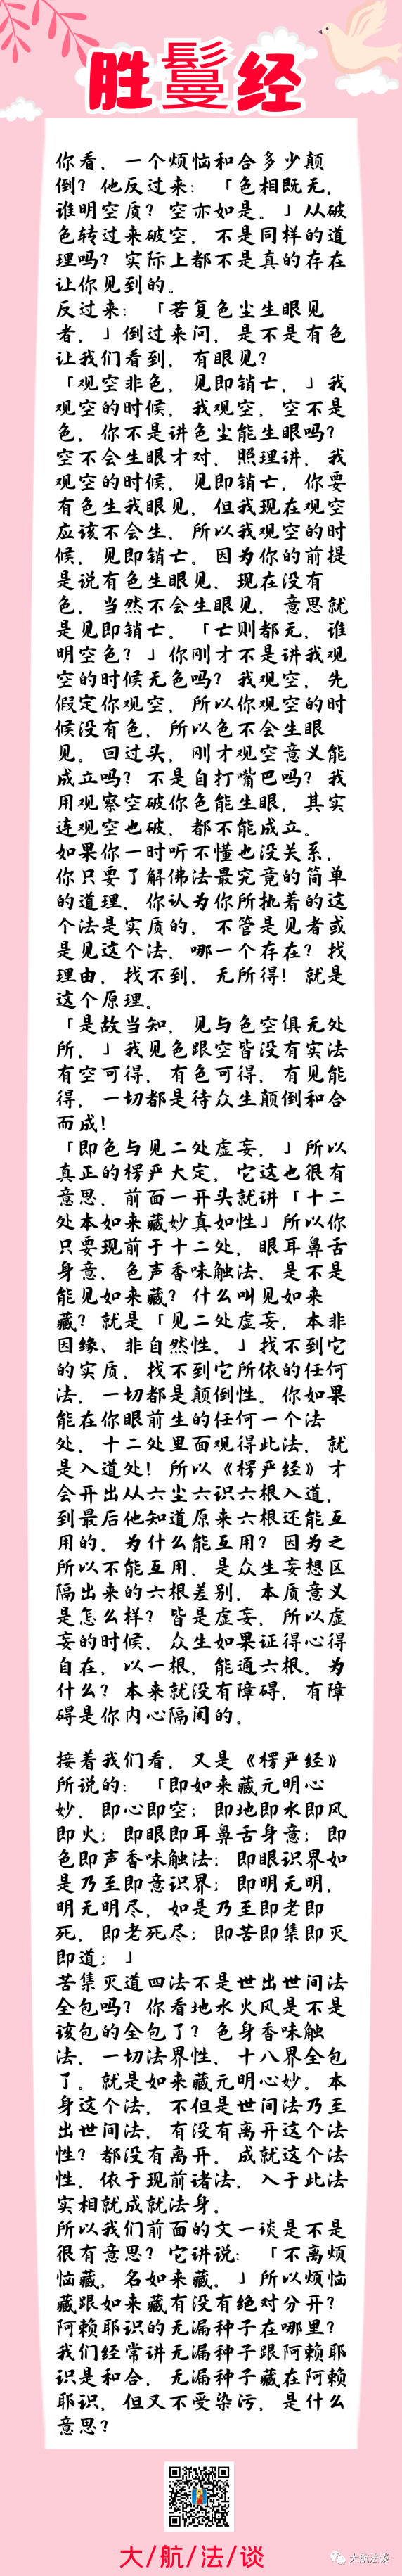 胜鬘经
你看，一个烦恼和合多少颠
倒？他反过来：「色相既无，
谁明空质？空亦如是。」从破
色转过来破空，不是同样的道
理吗？实际上都不是真的存在
让你见到的。
反过来：「若复色尘生眼见
者，」倒过来问，是不是有色
让我们看到，有眼见？
「观空非色，见即销亡，」我
观空的时候，我观空，空不是
色，你不是讲色尘能生眼吗？
空不会生眼才对，照理讲，我
观空的时候，见即销亡，你要
有色生我眼见，但我现在观空
应该不会生，所以我观空的时
候，见即销亡。因为你的前提
是说有色生眼见，现在没有
色，当然不会生眼见，意思就
是见即销亡。「亡则都无，谁
明空色？」你刚才不是讲我观
空的时候无色吗？我观空，先
假定你观空，所以你观空的时
候没有色，所以色不会生眼
见。回过头，刚才观空意义能
成立吗？不是自打嘴巴吗？我
用观察空破你色能生眼，其实
连观空也破，都不能成立。
如果你一时听不懂也没关系，
你只要了解佛法最究竟的简单
的道理，你认为你所执着的这
个法是实质的，不管是见者或
是见这个法，哪一个存在？找
理由，找不到，无所得！就是
这个原理。
「是故当知，见与色空俱无处
所，」我见色跟空皆没有实法
有空可得，有色可得，有见能
得，一切都是待众生颠倒和合
而成！
「即色与见二处虚妄，」所以
真正的楞严大定，它这也很有
意思，前面一开头就讲「十二
处本如来藏妙真如性」所以你
只要现前于十二处，眼耳鼻舌
身意，色声香味触法，是不是
能见如来藏？什么叫见如来
藏？就是「见二处虚妄，本非
因缘、非自然性。」找不到它
的实质，找不到它所依的任何
法，一切都是颠倒性。你如果
能在你眼前生的任何一个法
处，十二处里面观得此法，就
是入道处！所以《楞严经》才
会开出从六尘六识六根入道，
到最后他知道原来六根还能互
用的。为什么能互用？因为之
所以不能互用，是众生妄想区
隔出来的六根差别，本质意义
是怎么样？皆是虚妄，所以虚
妄的时候，众生如果证得心得
自在，以一根，能通六根。为
什么？本来就没有障碍，有障
碍是你内心隔阂的。
接着我们看，又是《楞严经》
所说的：「即如来藏元明心
妙，即心即空；即地即水即风
即火；即眼即耳鼻舌身意；即
色即声香味触法；即眼识界如
是乃至即意识界；即明无明，
明无明尽，如是乃至即老即
死，即老死尽；即苦即集即灭
即道；」
苦集灭道四法不是世出世间法
全包吗？你看地水火风是不是
该包的全包了？色身香味触
法，一切法界性，十八界全包
了。就是如来藏元明心妙。本
身这个法，不但是世间法乃至
出世间法，有没有离开这个法
性？都没有离开。成就这个法
性，依于现前诸法，入于此法
实相就成就法身。
所以我们前面的文一谈是不是
很有意思？它讲说：「不离烦
恼藏，名如来藏。」所以烦恼
藏跟如来藏有没有绝对分开？
阿赖耶识的无漏种子在哪里？
我们经常讲无漏种子跟阿赖耶
识是和合，无漏种子藏在阿赖
耶识，但又不受染污，是什么
意思？
大/航/法/谈
大航法谈